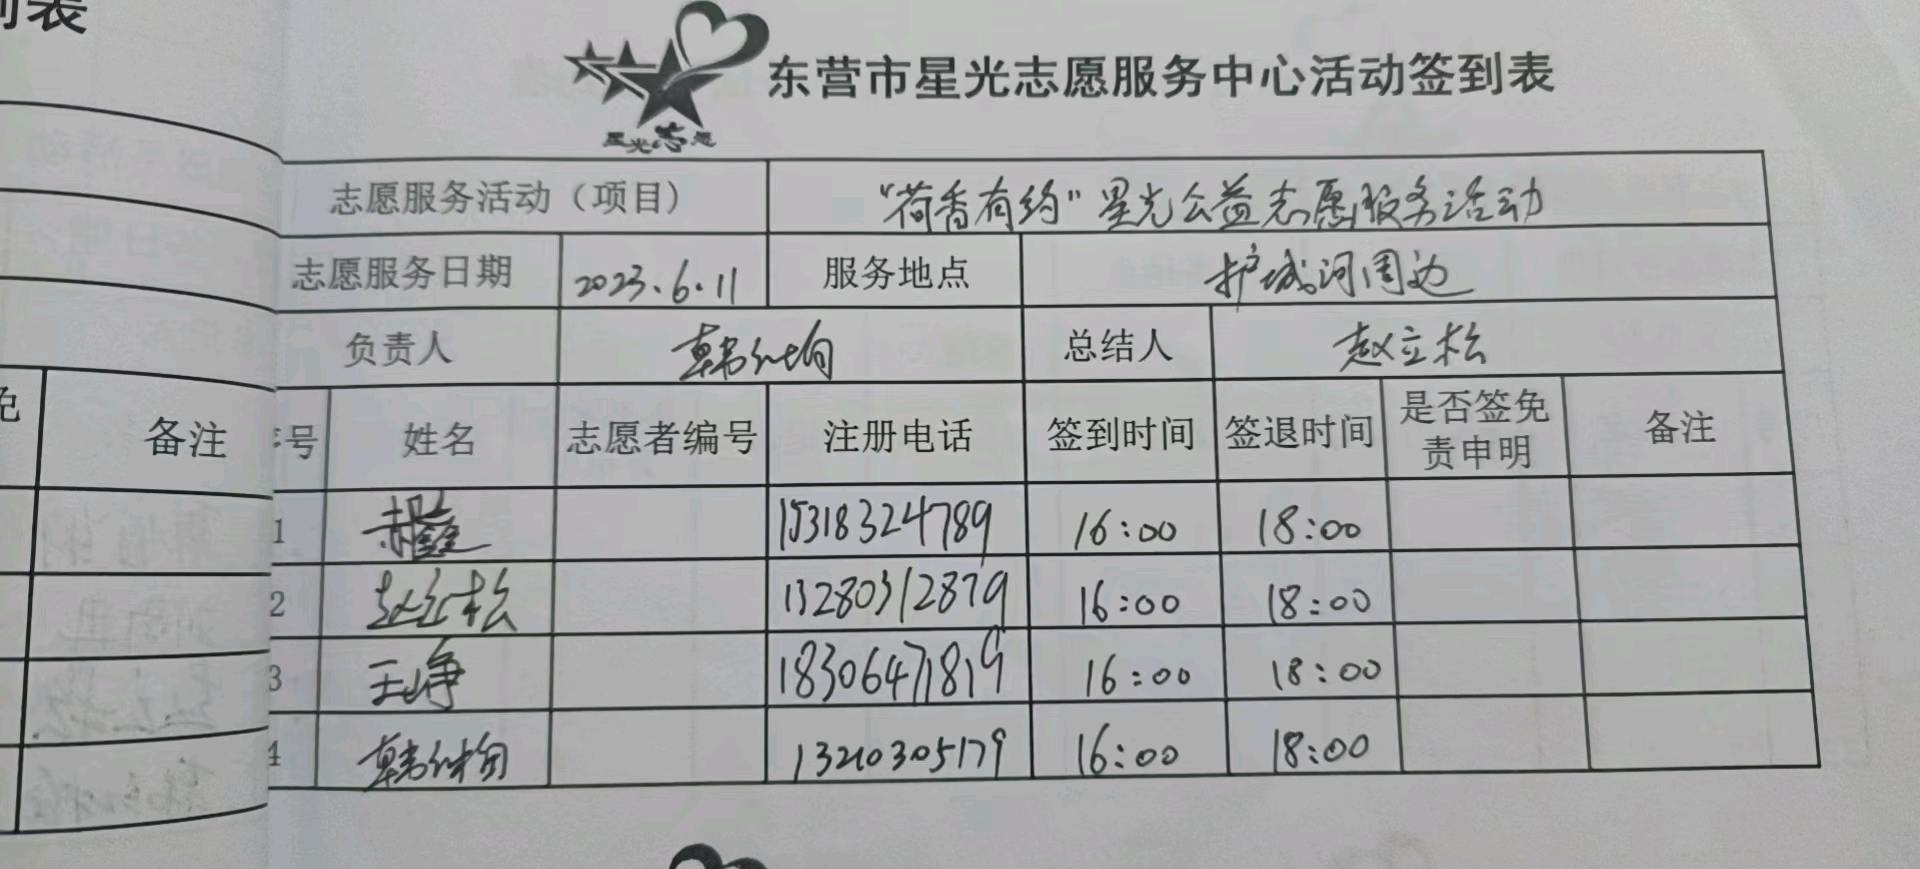 到表
东营市星光志愿服务中心活动签到表
星光志愿
志愿服务活动（项目） "荷香有约"星光公益志愿服务活动
志愿服务日期 2023.6.11 服务地点 护城河周边
负责人 韩红梅 总结人 赵立松
免 备注 序号 姓名 志愿者编号 注册电话 签到时间 签退时间 是否签免责申明 备注
1 15318324789 16:00 18:00
2 赵立松 13280312879 16:00 18:00
3 王峥 18306471819 16:00 18:00
4 13210305179 16:00 18:00